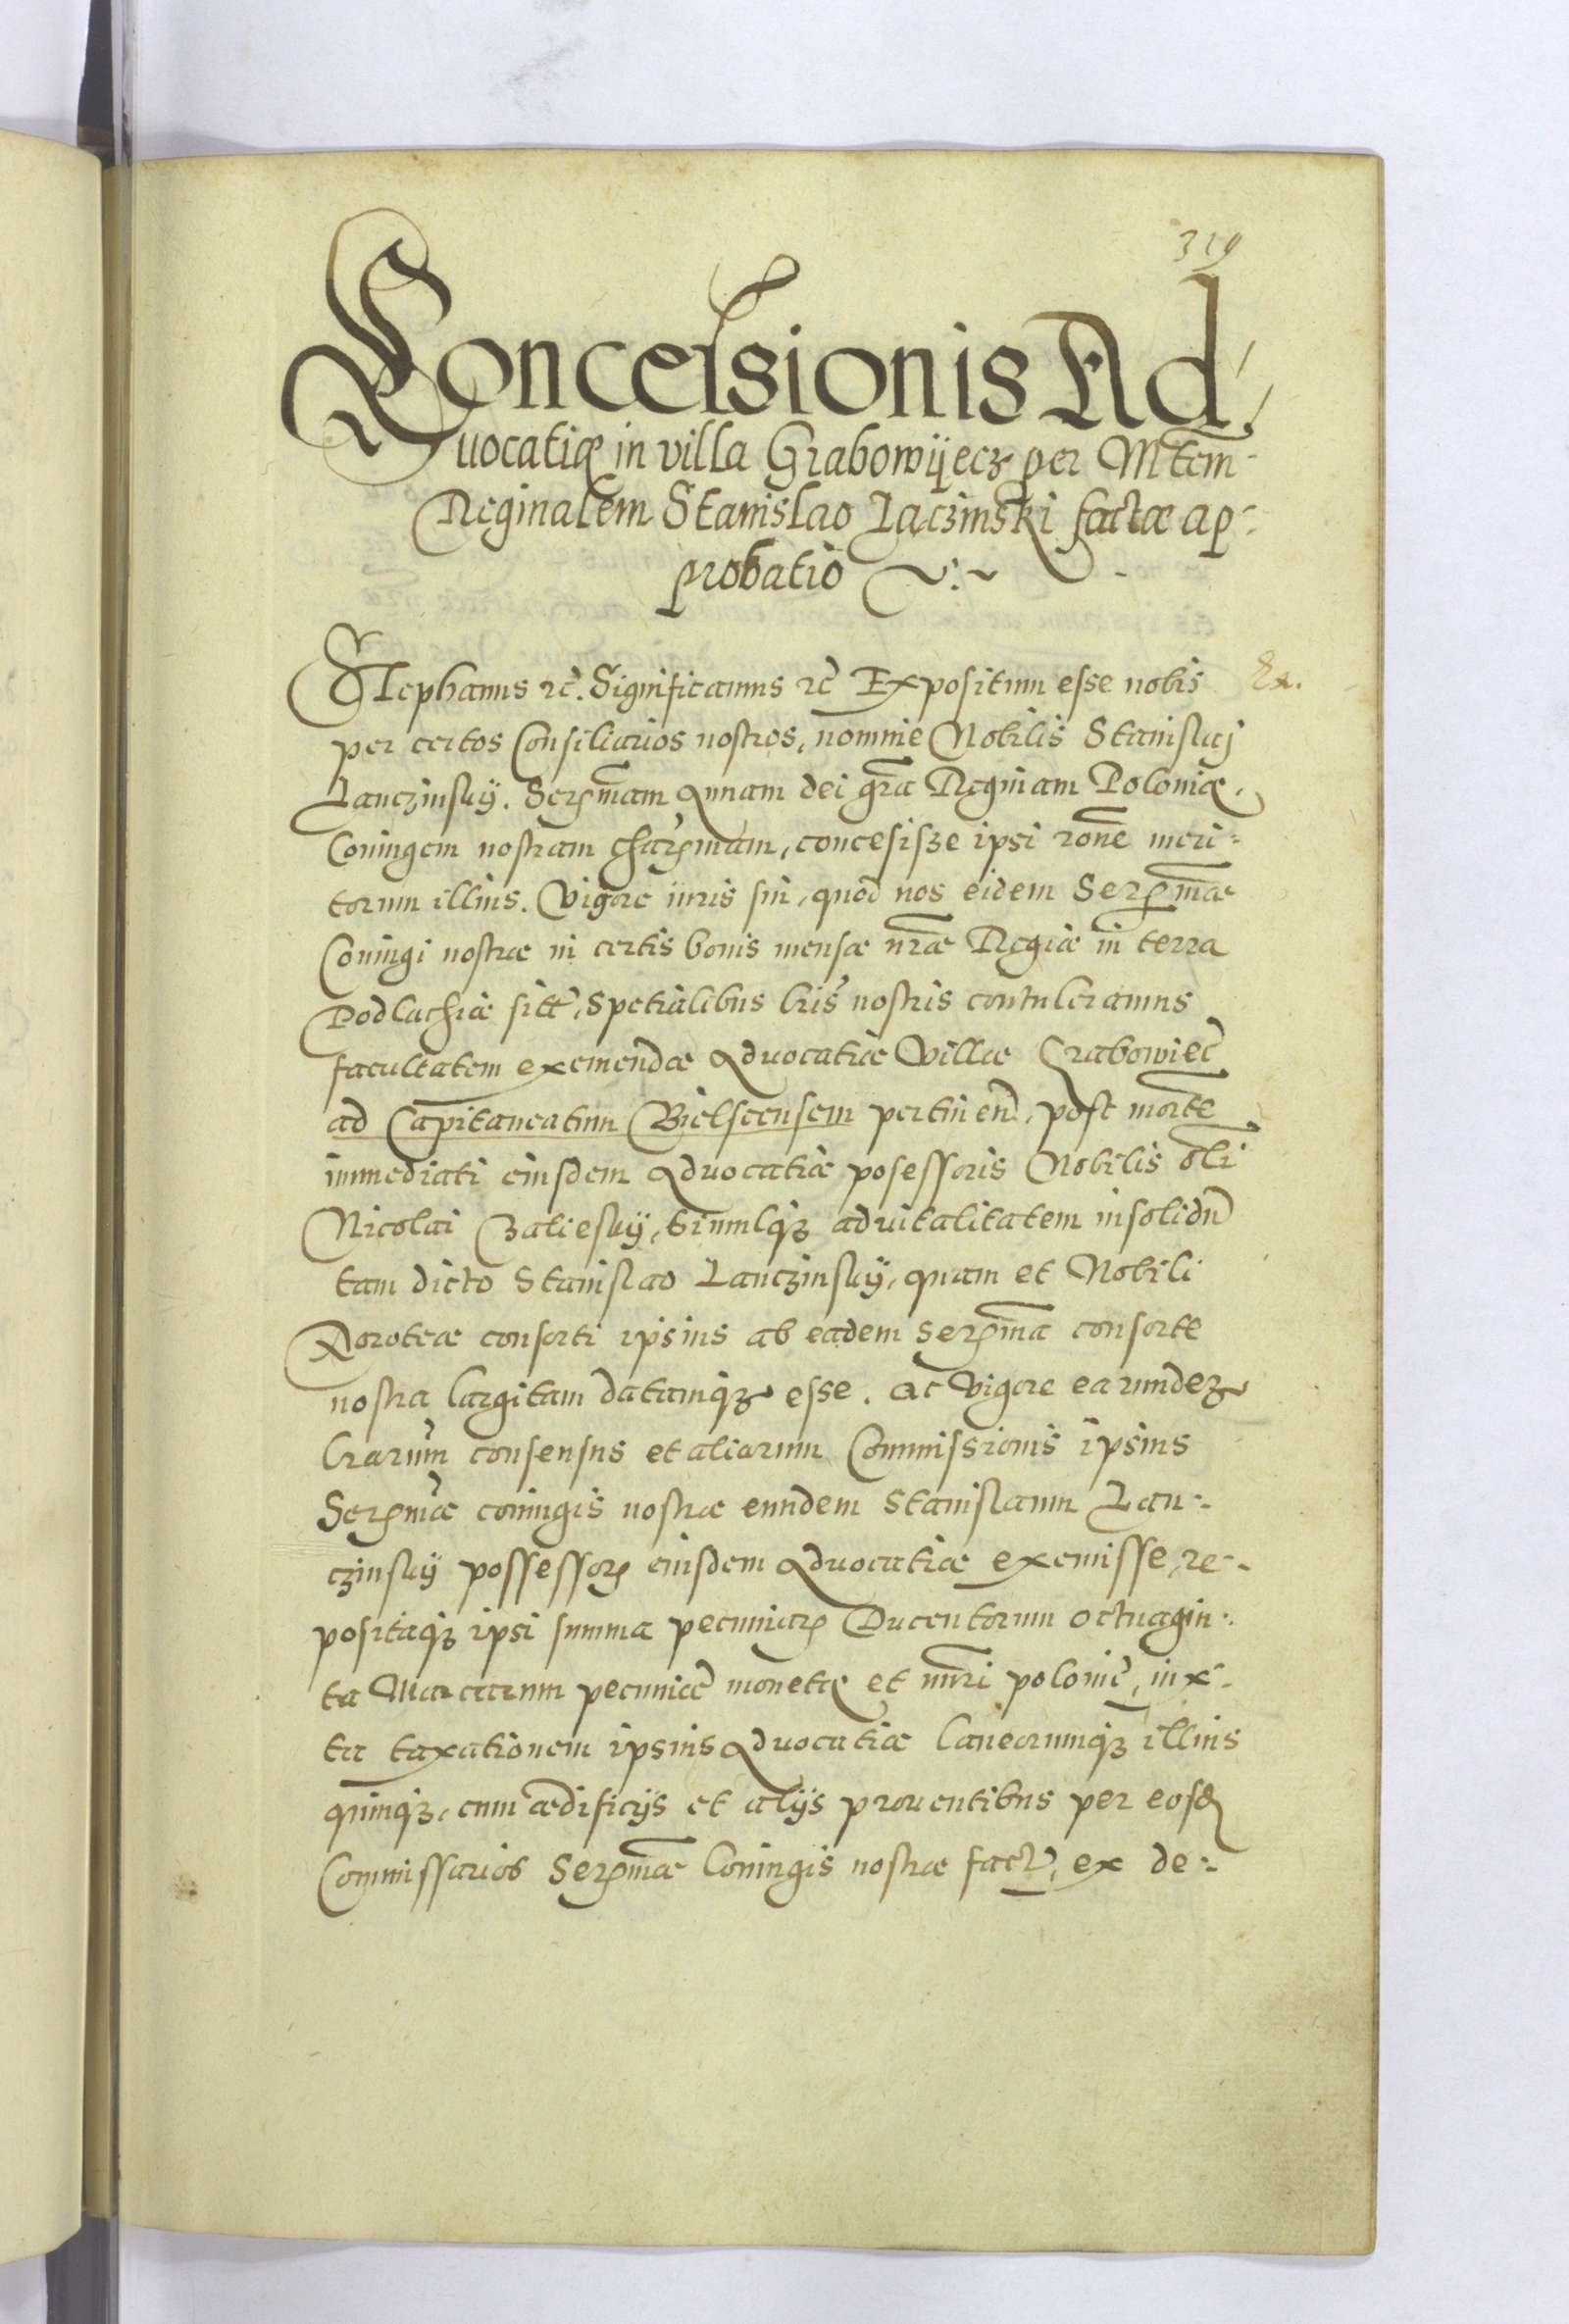 319
Concessionis Ad-
uocatiæ in villa Grabowÿecz per Mtem
Reginalem Stanislao Łączinski factæ ap-
probatio
Stephanus etc̃. Significamus etc̃ Expositum esse nobis
Ex.
per certos Consiliarios nostros, nomine Nobilis Stanislaj
Lanczinskÿ. Serᵐᵃᵐ Annam dei gr̃a Reginam Poloniæ.
Coniugem nostram char̃mam, concesisze ipsi rõne meri-
torum illius. Vigore iuris sui, quod nos eidem Serᵐæ
Coniugi nostræ in certis bonis mensæ nr̃æ Regiæ in terra
Podlachiæ sitt̃, spetialibus l̃ris nostris contuleramus
facultatem exemendæ Aduocatiæ Villæ Grabowiec̃
ad Capitaneatum Bielscensem pertinen̄, post mortē
immediati eiusdem Aduocatiæ posessoris Nobilis oli
Nicolai Zaliesky, simulqȝ aduitalitatem insolidū
tam dicto Stanislao Lanczinskÿ, quam et Nobili
Doroteæ consorti ipsius ab eadem Serᵐᵃ consorte
nostra largitam datamqȝ esse. Ac Vigore earundeȝ
l̃rarum consensus et aliarum Commissionis ipsius
Serᵐæ coniugis nostræ eundem Stanislaum Lan-
czinskÿ possessorē eiusdem Aduocatiæ exemisse, re-
positaqȝ ipsi summa pecuniarȝ Ducentorum octuagin-
ta Marcarum pecuniæ monetæ et nūri polonic̃, iux-
ta taxationem ipsius Aduocatiæ laneorumqȝ illius
quinqȝ, cum ædificijs et alijs prouentibus per eosd̃
Commissarios Serᵐæ Coniugis nostræ fact̃, ex de-